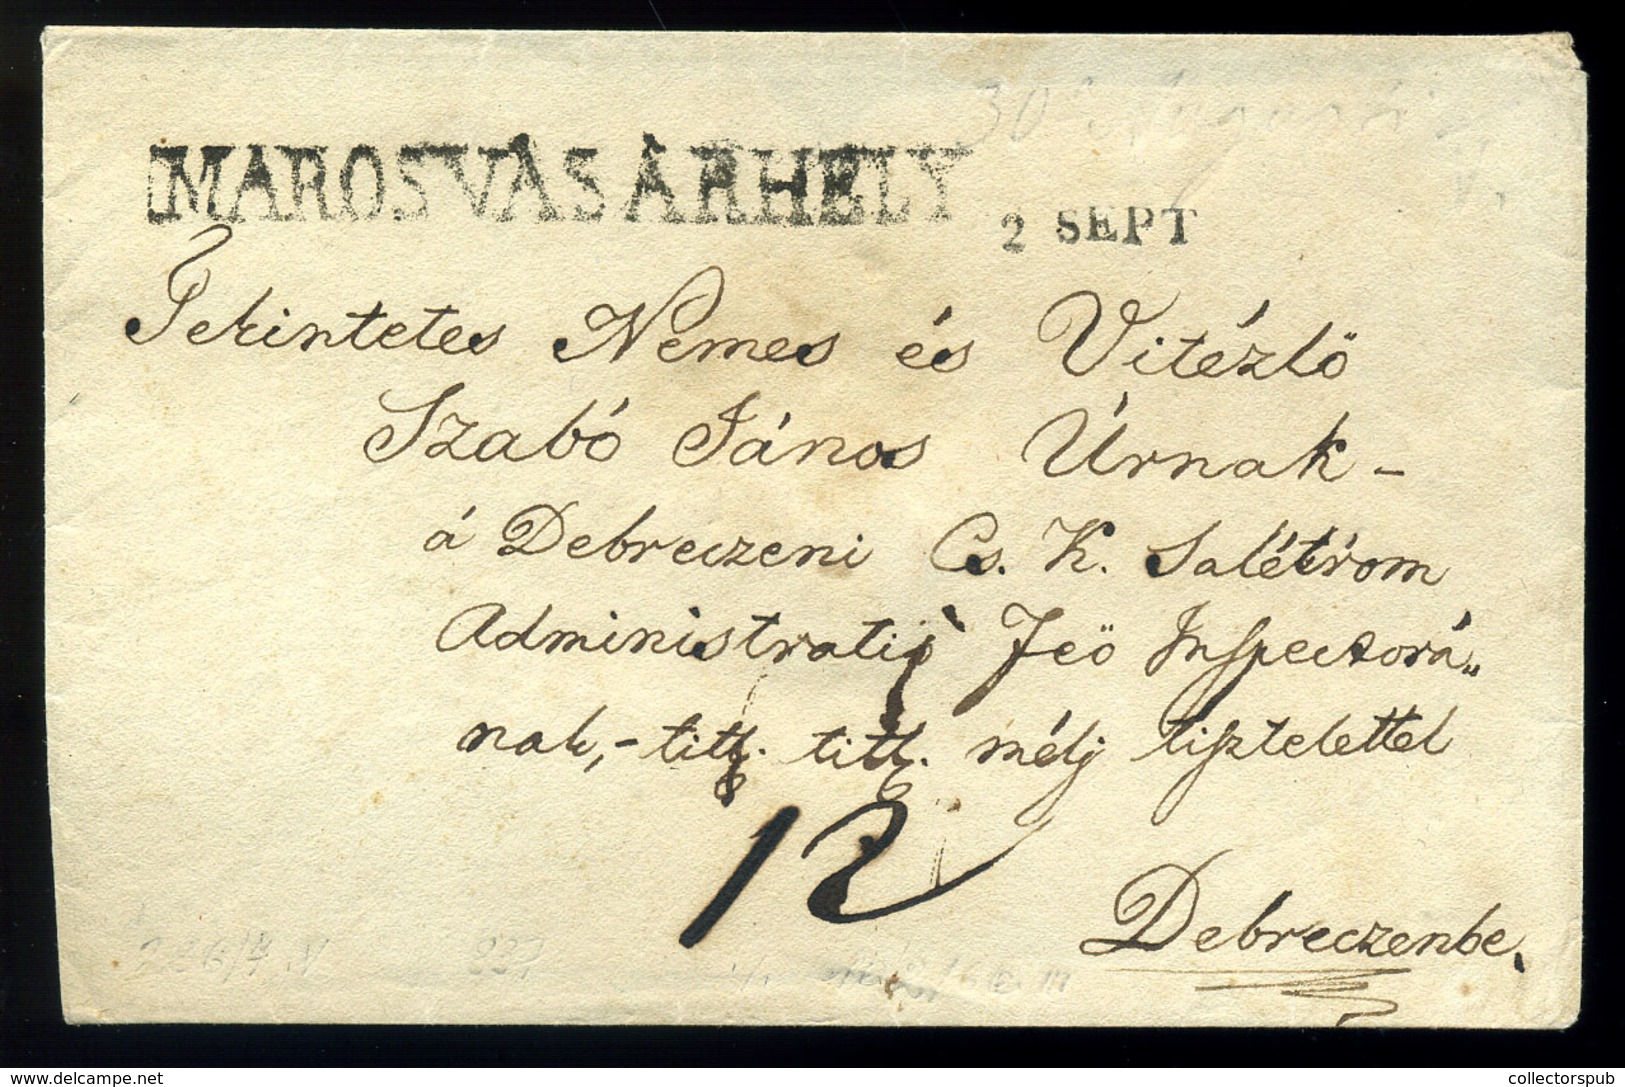 MAROSVÁSÁRHELY
2 SEPT
Tekintetes Nemes és Vitézlö
Szabó János Úrnak -
á Debreczeni Cs. K. Salétrom
Administratio Feö Inspectorá„
nak, - titt. titt. mélj tisztelettel
12
Debreczenbe.
delcampe.net
collectorspub